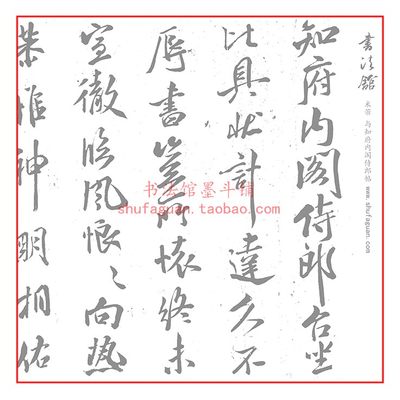 書法館
米芾 与知府内阁侍郎帖 www.shufaguan.com
知府内閣侍郎台坐
比具狀計達久不
辱書豈所懷終未
宣徹臨風悢々向熱
恭惟神明相佑
书法馆墨斗铺
shufaguan.taobao.com